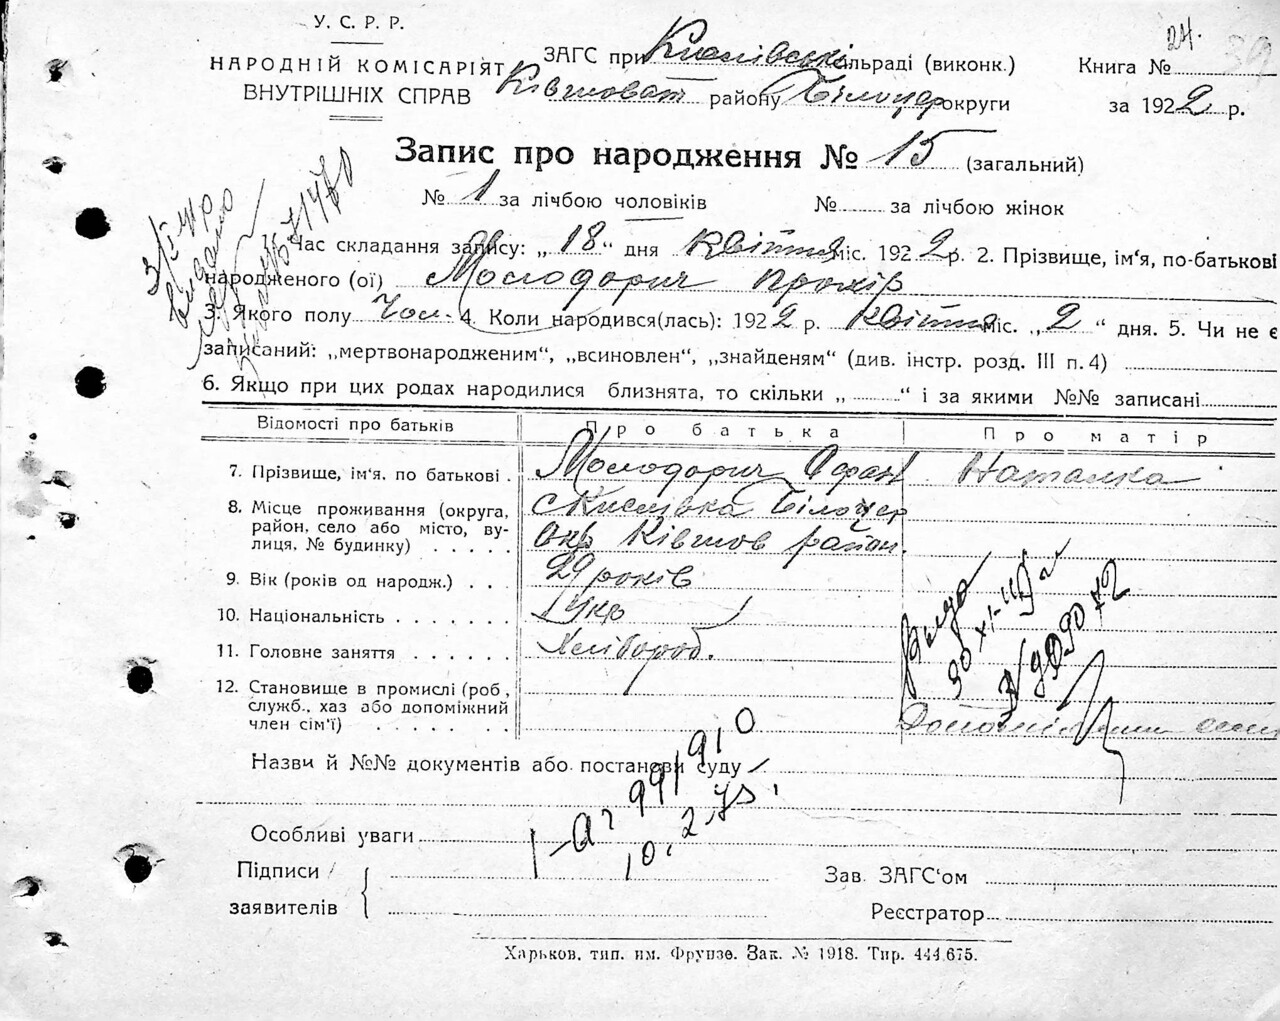 У. С. Р. Р.
НАРОДНІЙ КОМІСАРІЯТ
ВНУТРІШНІХ СПРАВ
ЗАГС при Кислівські сільраді (виконк.)
Ківшоват району Білоцер округи
24. 39
Книга №
за 1922 р.
Запис про народження № 15 (загальний)
№ 1 за лічбою чоловіків № за лічбою жінок
1. Час складання запису: „18“ дня Квітня міс. 1922 р. 2. Прізвище, ім'я, по-батькові
народженого (ої) Молодорич Прокір
3. Якого полу Чол. 4. Коли народився(лась): 1922 р. Квітня міс. „2“ дня. 5. Чи не є
записаний: „мертвонародженим“, „всиновлен“, „знайденям“ (див. інстр. розд. III п. 4)
6. Якщо при цих родах народилися близнята, то скільки „ “ і за якими №№ записані
Відомості про батьків Про батька Про матір
7. Прізвище, ім'я, по батькові . Молодорич Наталка
8. Місце проживання (округа, район, село або місто, вулиця, № будинку) с Кислівка Білоцер
окр Ківшов район.
9. Вік (років од народж.) . . . 29 років
10. Національність . . . . . . . Укр
11. Головне заняття . . . . . . Хлібороб.
12. Становище в промислі (роб., служб., хаз або допоміжний член сім'ї)
Назви й №№ документів або постанови суду
991910
10.2.75.
Особливі уваги
Підписи
заявителів
Зав. ЗАГС'ом
Реєстратор
Харьков, тип. им. Фрунзе. Зак. № 1918. Тир. 444.675.